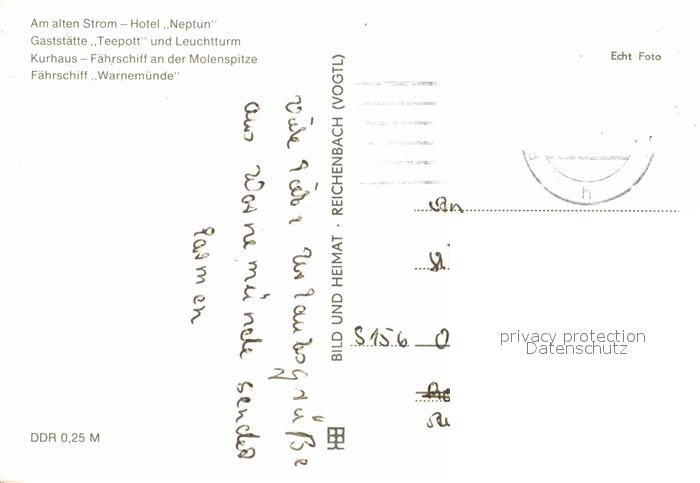 Am alten Strom – Hotel „Neptun"
Gaststätte „Teepott" und Leuchtturm
Kurhaus – Fährschiff an der Molenspitze
Fährschiff „Warnemünde"
Echt Foto
BILD UND HEIMAT · REICHENBACH (VOGTL)
Viele liebe Urlaubsgrüße
aus Warnemünde sendet
An
5156 O
privacy protection
Datenschutz
DDR 0,25 M